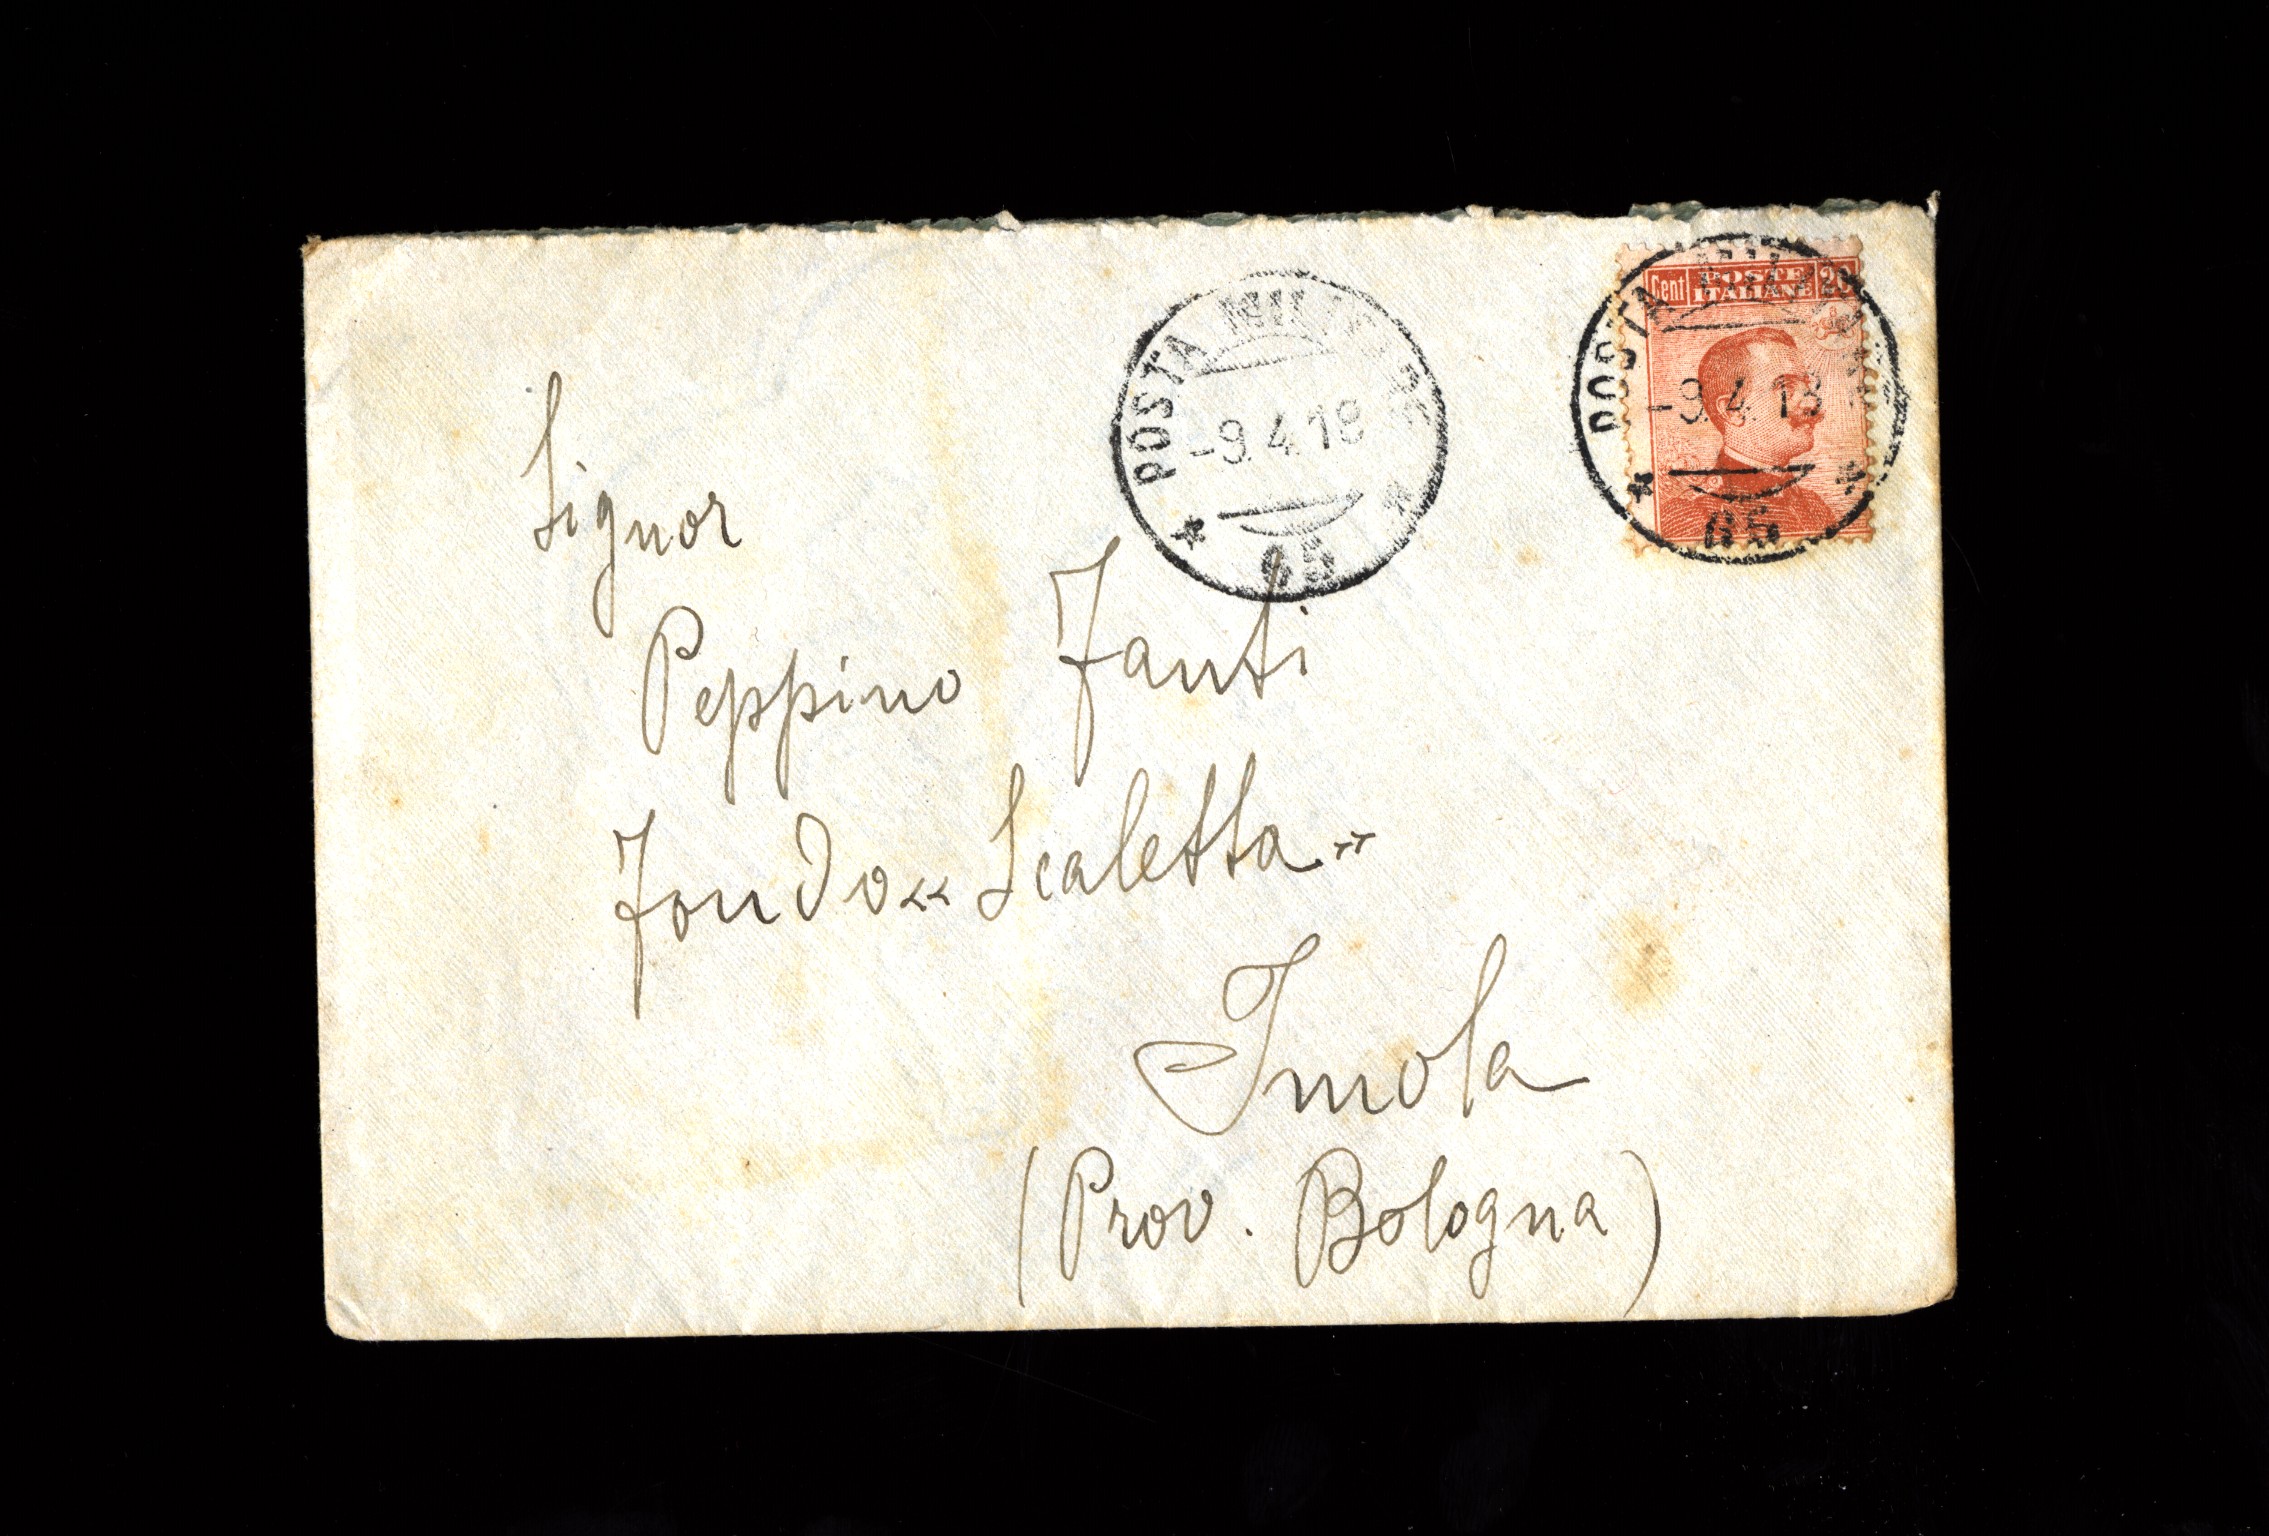 POSTA MILITARE
-9.4.18
65
Cent POSTE ITALIANE 20
POSTA MILITARE
-9.4.18
65
Signor
Peppino Fanti
Fondo « Scaletta »
Imola
(Prov. Bologna)